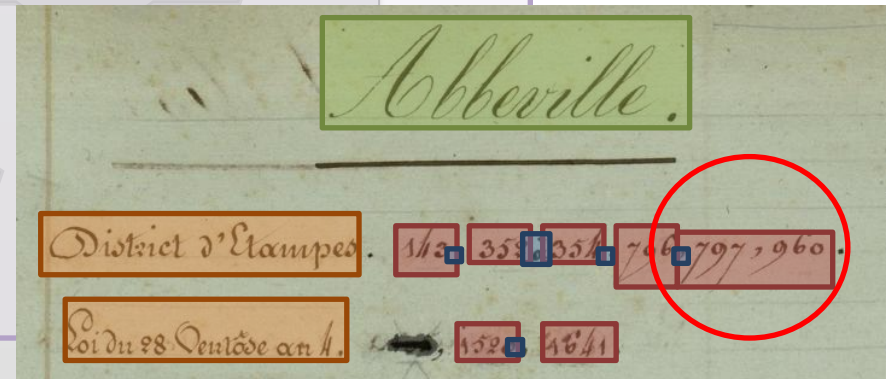 Abbeville.
District d'Etampes. 143, 354, 796, 797, 960.
Loi du 28 Ventôse an 4. 1641